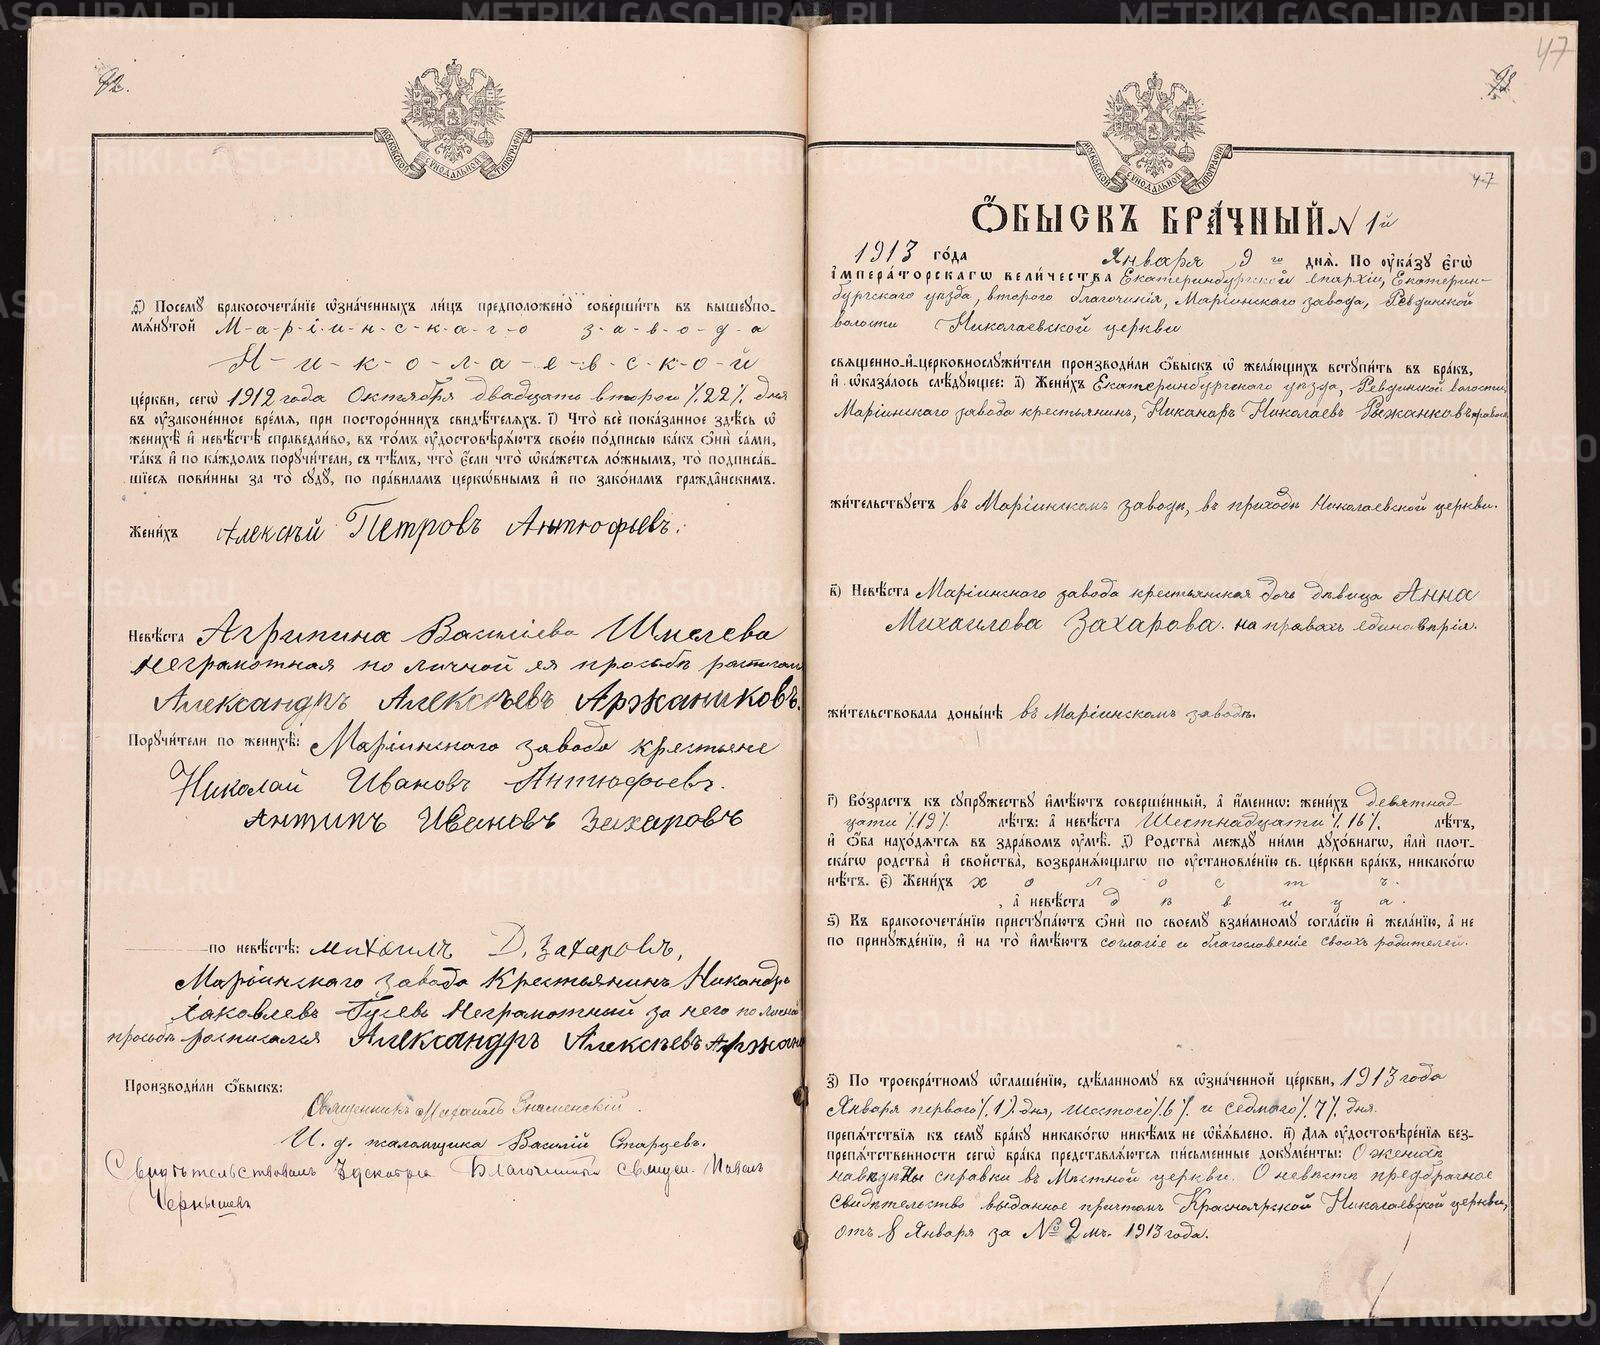 92.
МОСКОВСКОЙ СѴНОДАЛЬНОЙ ТИПОГРАФІИ
з҃) Посемꙋ бракосочета́нїе ѡзна́ченныхъ ли́цъ предположено̀ соверши́ть въ вышеупо-
мѧ́нутой М-а-р-і-и-н-с-к-а-г-о з-а-в-о-д-а
Н-и-к-о-л-а-е-в-с-к-о-й
це́ркви, сегѡ̀ 1912 года Октября двадцать второго /22/ дня
въ ᲂу҆зако́ненное вре́мѧ, при посторо́ннихъ свидѣ́телѧхъ. і҃) Что̀ всѐ пока́занное здѣ́сь ѡ҆
женихѣ̀ и҆ невѣ́стѣ справедли́во, въ то́мъ ᲂу҆достовѣрѧ́ютъ свое́ю по́дписью ка́къ ѻ҆нѝ са́ми,
та́къ и҆ по ка́ждомъ порꙋчи́тели, съ тѣ́мъ, что̀ є҆́сли что̀ ѡ҆ка́жетсѧ ло́жнымъ, то̀ подписа́в-
шїесѧ пови́нны за то̀ сꙋдꙋ̀, по пра́виламъ церко́внымъ и҆ по зако́намъ гражда́нскимъ.
Жени́хъ Алексѣй Петровъ Антюфьевъ.
Невѣ́ста Агрипина Васильева Шмелева
неграмотная по личной ея просьбѣ
Александръ Алексѣевъ Аржанниковъ.
Порꙋчи́тели по женихѣ̀: Маріинского завода крестьяне
Николай Ивановъ Антюфьевъ.
Антипъ Ивановъ Захаровъ
по невѣ́стѣ: михаилъ Д. Захаровъ,
Маріинскаго завода Крестьянинъ Никандръ
Яковлевъ Гусевъ Неграмотный за него по личной
просьбѣ росписался Александръ Алексѣевъ
Производи́ли ѻ҆́быскъ:
Священникъ Михаилъ Знаменскій.
И. д. псаломщика Василій Старцевъ.
Свидѣтельствовалъ Благочинный священ. Павелъ
Чернышевъ
93
47
МОСКОВСКОЙ СѴНОДАЛЬНОЙ ТИПОГРАФІИ
47
Ѻ҆́БЫСКЪ БРА́ЧНЫЙ N 1й
1913 го́да Января 9го днѧ̀. По ᲂу҆ка́зꙋ є҆гѡ̀
і҆мпера́торскагѡ вели́чества Екатеринбургской епархіи, Екатерин-
бургскаго уѣзда, второго благочинія, Маріинскаго завода, Ревдинской
волости Николаевской церкви
свѧще́нно-и҆-церковнослꙋжи́тели производи́ли ѻ҆́быскъ ѡ҆ жела́ющихъ встꙋпи́ть въ бра́къ,
и҆ ѡ҆каза́лось слѣ́дꙋющее: а҃) Жени́хъ Екатеринбургскаго уѣзда, Ревдинской волости,
Маріинскаго завода крестьянинъ, Никаноръ Николаевъ Рыжанковъ
жи́тельствꙋетъ въ Маріинскомъ заводѣ, въ приходѣ Николаевской церкви.
в҃) Невѣ́ста Маріинского завода крестьянская дочь дѣвица Анна
Михаилова Захарова. на правахъ единовѣрія.
жи́тельствовала доны́нѣ въ Маріинскомъ заводѣ.
г҃) Во́зрастъ къ сꙋпрꙋ́жествꙋ и҆мѣ́ютъ соверше́нный, а҆ и҆́меннѡ: жени́хъ девятнад-
цати /19/ лѣ́тъ: а҆ невѣ́ста Шестнадцати /16/. лѣ́тъ,
и҆ ѻ҆́ба нахо́дѧтсѧ въ здра́вомъ ᲂу҆мѣ̀. д҃) Родства̀ междꙋ̀ ни́ми дꙋхо́внагѡ, и҆лѝ плот-
ска́гѡ родства̀ и҆ сво́йства̀, возбранѧ́ющагѡ по ᲂу҆становле́нїю св. це́ркви бра́къ, никако́гѡ
нѣ́тъ. є҃) Жени́хъ х о л о с т ъ.
, а҆ невѣ́ста д ѣ в и ц а.
ѕ҃) Къ бракосочета́нїю пристꙋпа́ютъ ѻ҆нѝ по своемꙋ̀ взаи́мномꙋ согла́сїю и҆ жела́нїю, а҆ не
по принꙋжде́нїю, и҆ на то̀ и҆мѣ́ютъ согласіе и благословеніе своихъ родителей.
з҃) По троекра́тномꙋ ѡ҆глаше́нїю, сдѣ́ланномꙋ въ ѡ҆зна́ченной це́ркви, 1913 года
Января перваго /1/. дня, шестого /6/ и седмого /7/. дня.
препѧ́тствїѧ къ семꙋ̀ бра́кꙋ никако́гѡ никѣ́мъ не ѡ҆б̾ѧ́влено. и҃) Для ᲂу҆достовѣре́нїѧ без-
препѧ́тственности сегѡ̀ бра́ка представлѧ́ютсѧ пи́сьменные докꙋме́нты: О женихѣ
наведены справки въ Мѣстной церкви. О невѣстѣ предбрачное
свидѣтельство выданное причтомъ Красноярской Николаевской церкви,
отъ 8 Января за № 2мъ. 1913 года.